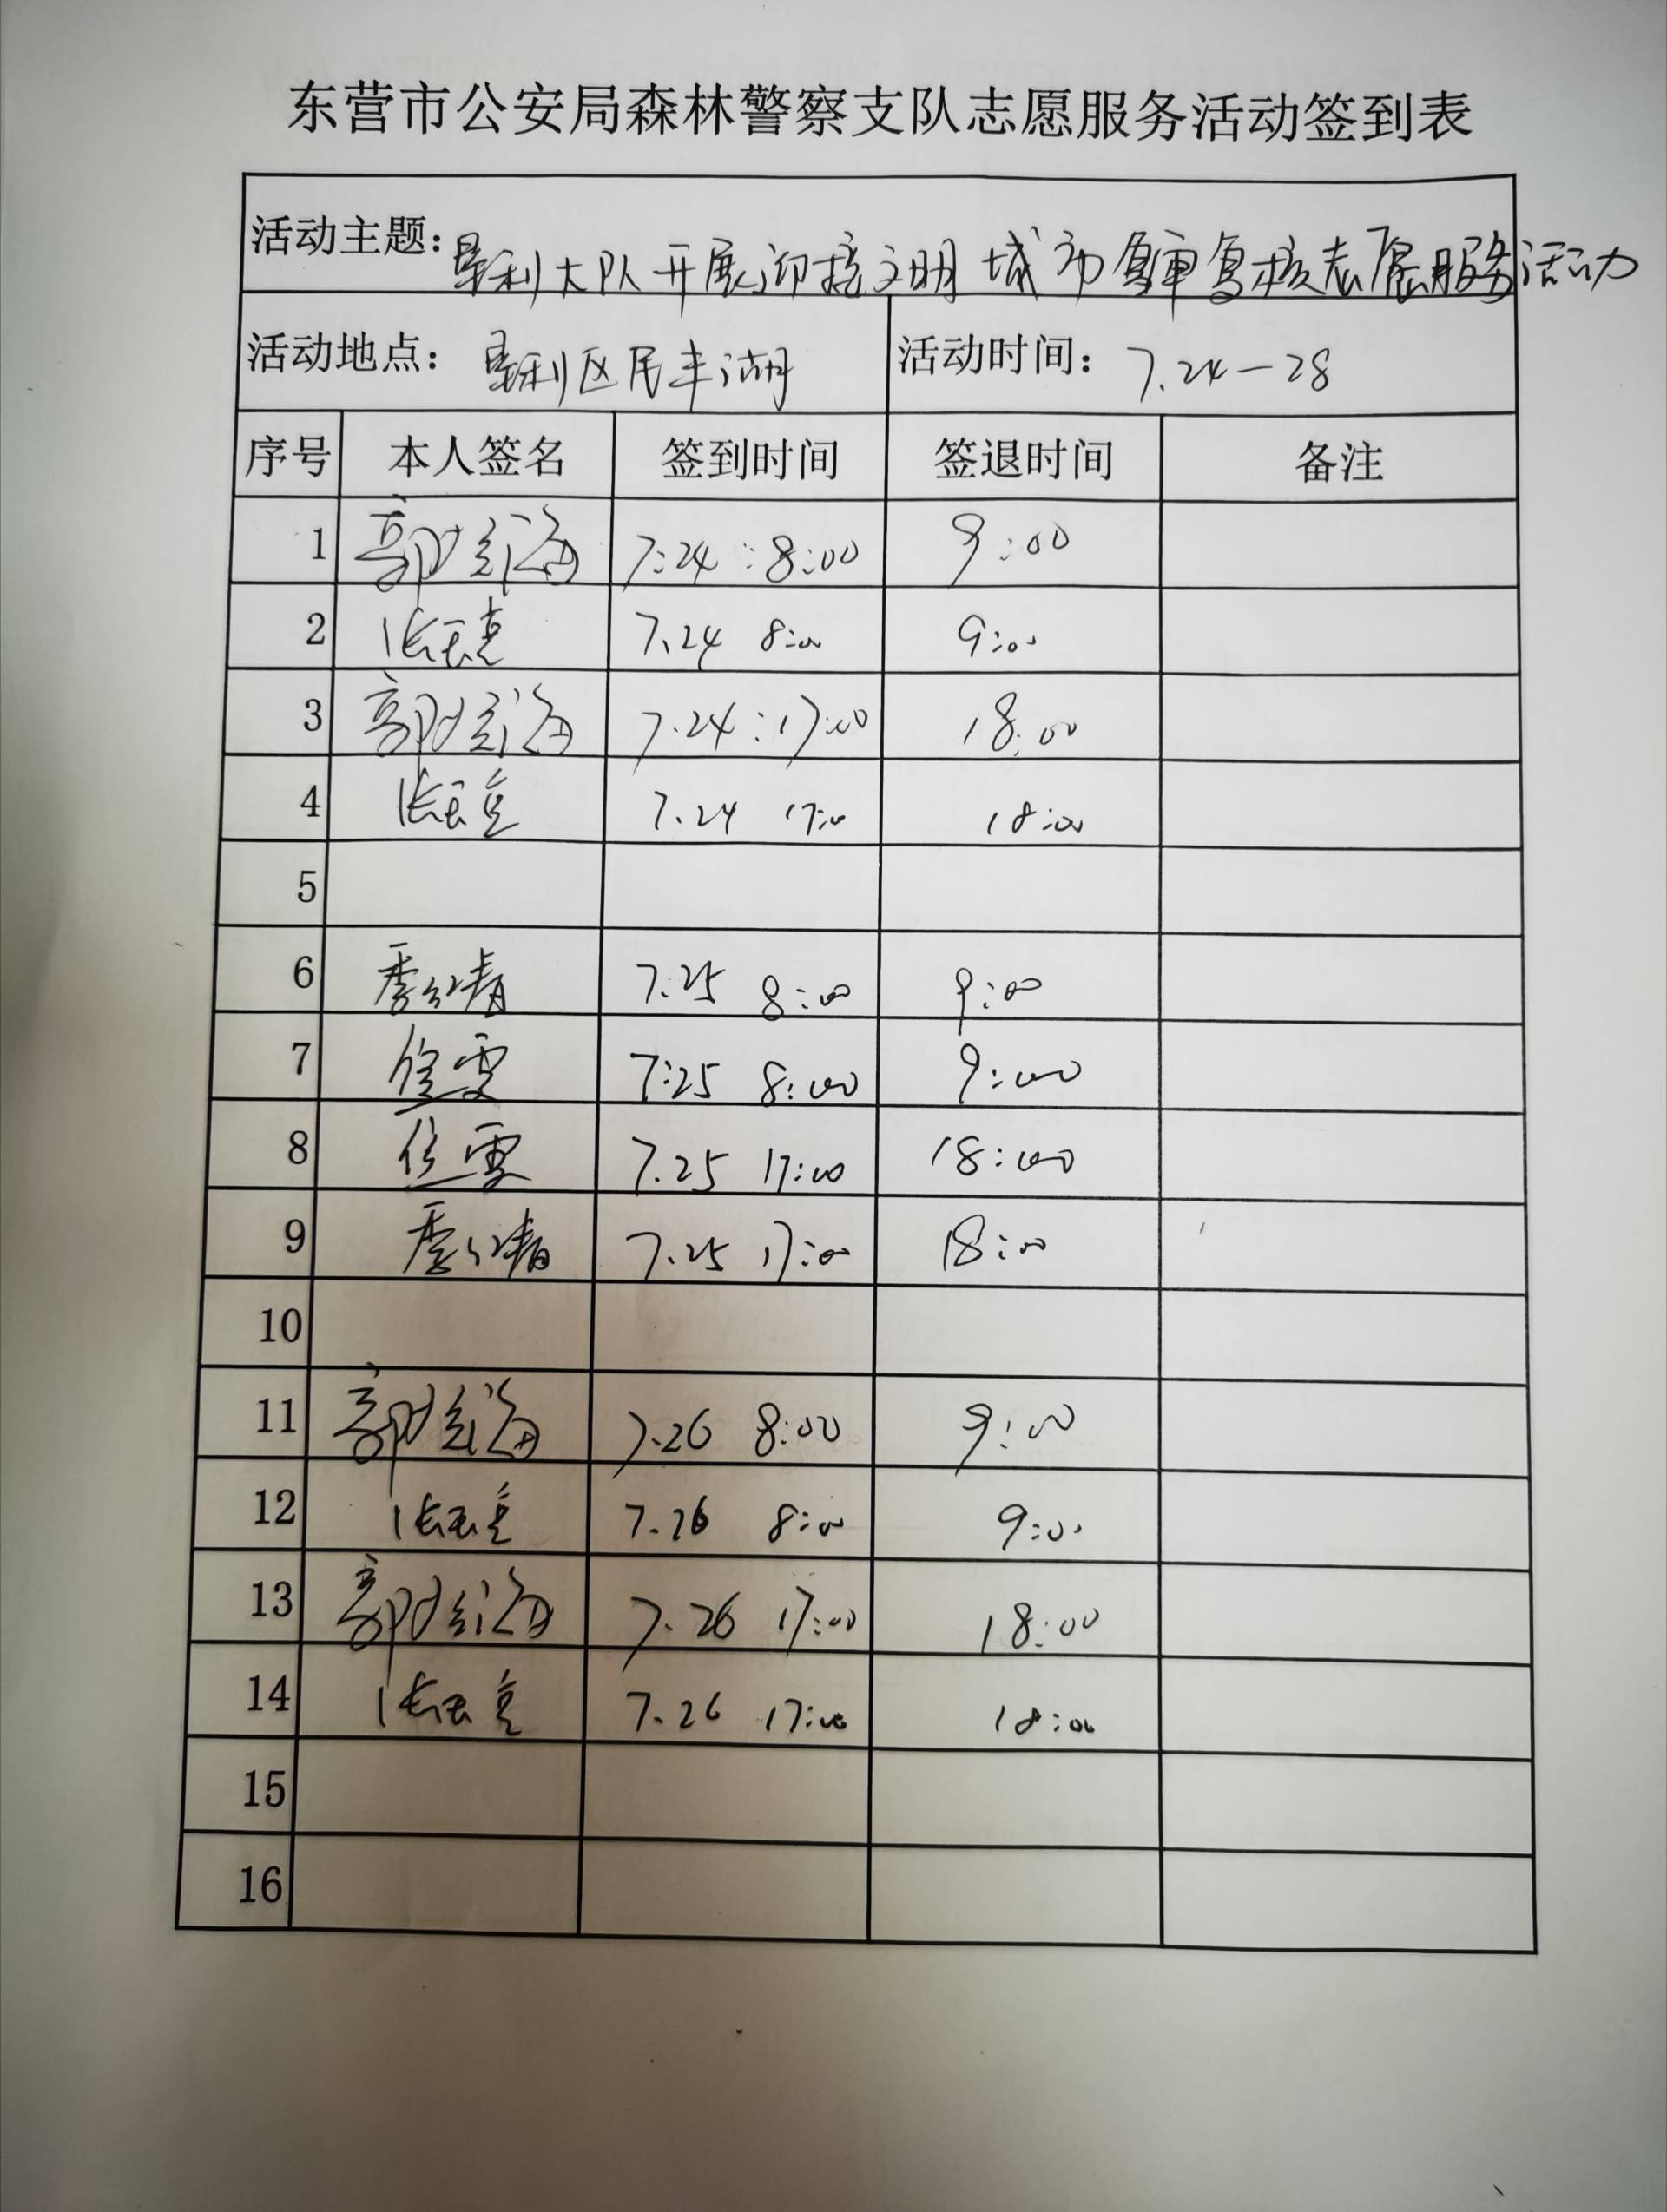 东营市公安局森林警察支队志愿服务活动签到表
活动主题：垦利大队开展迎接文明城市复审复核志愿服务活动
活动地点：垦利区民丰湖 活动时间：7.24-28
序号 本人签名 签到时间 签退时间 备注
1 7:24:8:00 9:00
2 7.24 8:00 9:00
3 7.24:17:00 18:00
4 7.24 17:00 18:00
5
6 7.25 8:00 9:00
7 7:25 8:00 9:00
8 7.25 17:00 18:00
9 7.25 17:00 18:00
10
11 7.26 8:00 9:00
12 7.26 8:00 9:00
13 7.26 17:00 18:00
14 7.26 17:00 18:00
15
16